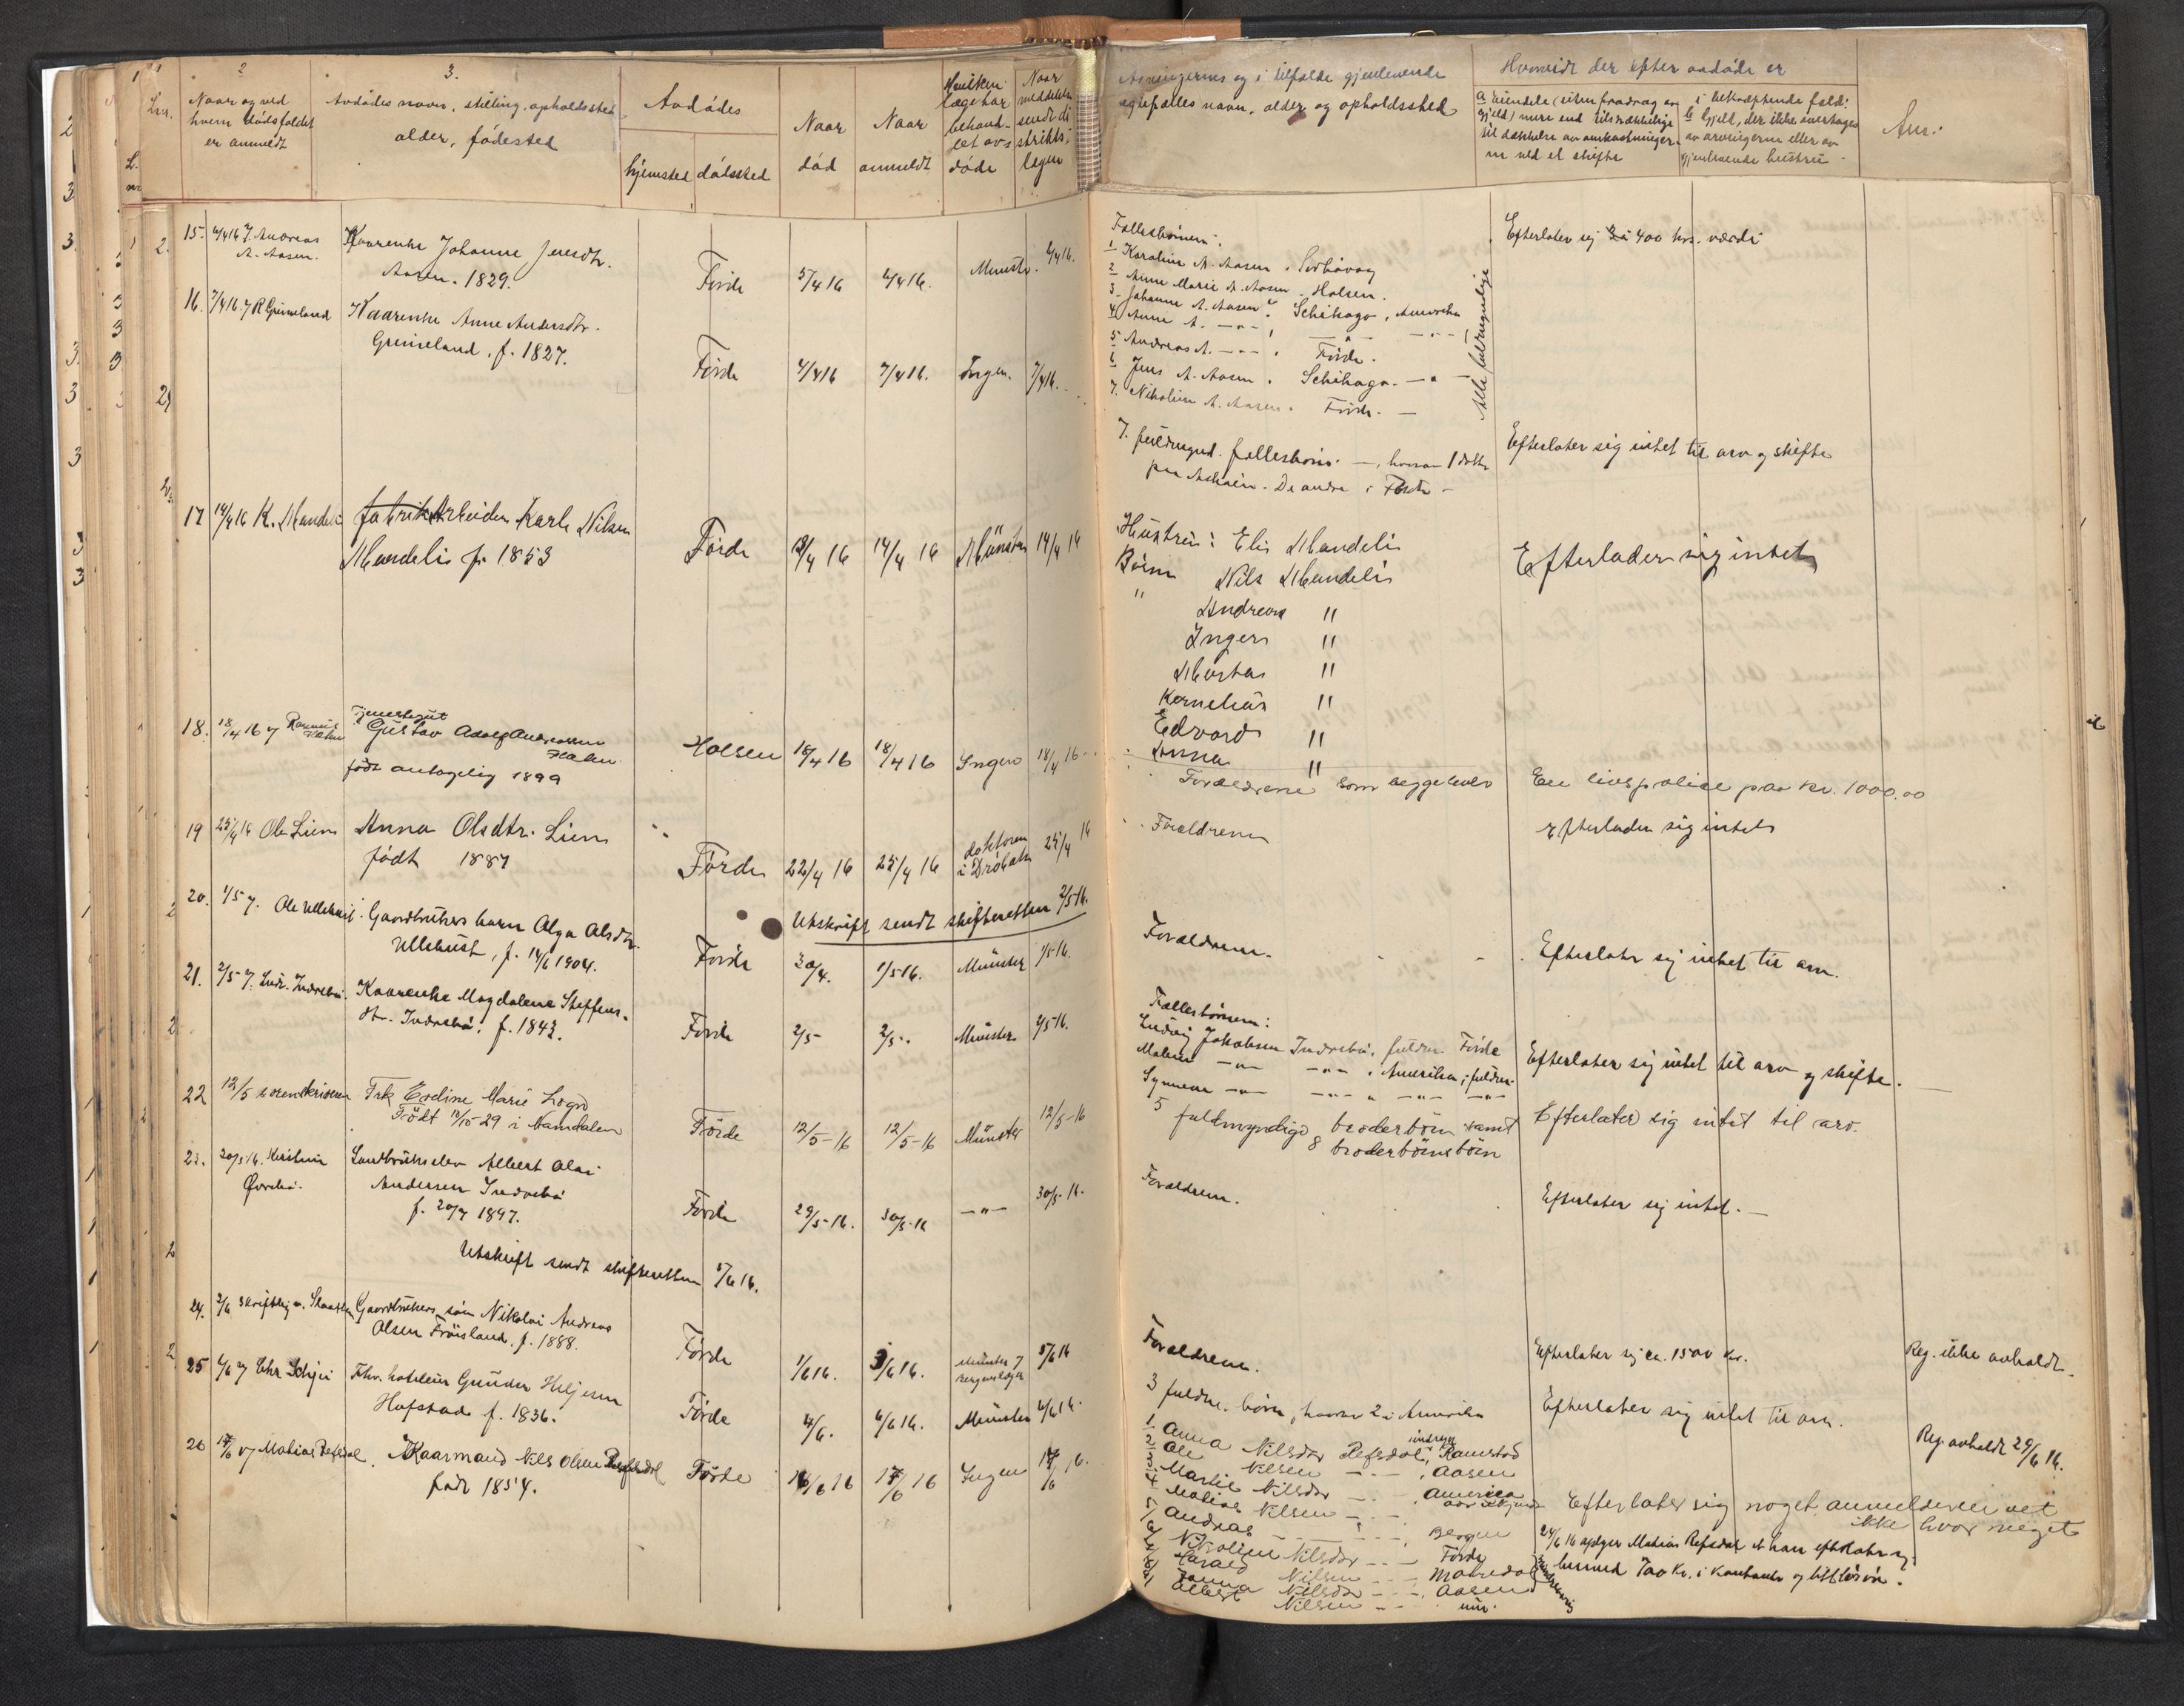 2
3.
Lnr.
Naar og ved
hvem dødsfaldet
er anmeldt
Avdødes navn, stilling, opholdssted
alder, fødested
Avdødes
hjemsted dødssted
Naar
død
Naar
anmeldt
Hvilken
læge har
behand-
let avs
døde
Naar
meddelelse
sendt di
strikts-
lægen
Arvingernes og i tilfælde gjenlevende
egtefælles navn, alder og opholdssted
Hvorvidt der efter avdøde er
a eiendele (uten fradrag av
gjeld) mere end tilstrækkelige
til dækkelse av omkostninger
ne ved et skifte
i bekræftende fald:
b Gjeld, der ikke overtages
av arvingerne eller av
gjenlevende hustru
Anr.
15. 6/4 16 Andreas
A. Aasen.
Kaarenke Johanne Jensdtr.
Aasen. 1829.
Førde 5/4 16 6/4 16. Munster. 6/4 16.
Fællesbørnene:
1 Karoline A. Aasen
2 Anne Marie A. Aasen. Holsen.
3. Johanne A. Aasen. Schikago, Amerika
4 Anne A. -"-
5 Andreas A. -"- Førde.
6 Jens A. Aasen. Schikago. -"-
7. Nikoline A. Aasen. Førde. -
Alle fuldmyndige
Efterlater sig 400 krs. værdi
16. 7/4 16. R Grimeland
Kaarenke Anne Andersdtr.
Grimeland, f. 1827.
Førde 4/4 16 7/4 16. Ingen. 7/4 16.
7. fuldmynd. fællesbørn. -, hvorav 1 datter
paa Askøin. De andre i Førde -
Efterlater sig intet til arv og skifte
17 14/4 16 K. Mandeli
fabrik Arbeider Karle Nilsen
Mandelis f. 1853
Førde 13/4 16 14/4 16 Münster 14/4 16
Hustru: Elis Mandelis
Børn Nils Mandelis
" Andreas "
Inger "
"
Kornelius "
Edvard "
Anna "
Efterlader sig intet
18. 18/4 16 Rasmus
Tjenestegut
Gustav Adolf Andreassen
født antagelig 1899
Holsen 18/4 16 18/4 16 Ingen 18/4 16
Forældrene som begge lever
En livspolice paa kr. 1000.00
19 25/4 16 Ole Lien
Anna Olsdtr. Lien
født 1887
Førde 22/4 16 25/4 16 doktoren
i Drøbak 25/4 16
Forældrene
Efterlader sig intet
Utskrift sendt skifteretten 2/5 16.
20. 1/5 Ole Ullehust.
Gaardbrukers barn Olga Olsdtr.
Ullehust, f. 14/6 1904.
Førde 30/4. 1/5-16. Münster 1/5-16.
Forældrene.
Efterlater sig intet til arv.
21. 2/5 Ludv. Indrebø.
Kaarenke Magdalene Steffens-
dtr. Indrebø. f. 1843.
Førde 2/5- 2/5- Münster 2/5 16.
Fællesbørnene:
Ludvig Jakobsen Indrebø, fuldm. Førde
Malene -"- -"- , Amerika; fuldm.
Synneve -"- -"- " -"- -"-
Efterlater sig intet til arv og skifte.
22 12/5 sorenskriveren
Frk Eveline Marie Logn
Født 12/10-29 i Namdalen
Førde 12/5-16 12/5-16 Münster 12/5-16
5 fuldmyndige broderbørn samt
8 broderbørnsbørn
Efterlater sig intet til arv.
23. 30/5 16. Kristine
Øvrebø.
Landbrukselev Albert Olai
Andersen Indrebø
f. 20/7 1897.
Førde 29/5-16. 30/5-16 -"- 30/5-16.
Forældrene.
Efterlater sig intet. -
Utskrift sendt skifteretten 5/6 16.
24. 2/6 Skriftlig
Gaardbrukers søn Nikolai Andreas
Olsen Frøisland, f. 1888.
Førde 1/6 16. 3/6 16. 5/6 16
Forældrene.
Efterlater sig ca. 1500 kr.
Reg. ikke avholdt.
25 6/6 Chr Schjei
Fhv. hoteleier Gunder Heljesen
Hafstad f. 1836.
Førde 4/6. 6/6 16. Münster 6/6 16.
3 fuldm. børn, hvorav 2 i Amerika
Efterlater sig intet til arv.
26 17/6 Matias Refsdal.
Kaarmand Nils Olsen Refsdal
født 1854.
Førde 16/6 16 17/6 16 Ingen 17/6 16.
1 Anna Nilsdtr Refsdal, Ramstad
2 Ole Nilsen - - , Aasen
3 Martie Nilsdtr - - America
4 Matias Nilsen - -
5 Andreas - - Bergen
6 Nikoline Nilsdtr - - Førde
7 Harald Nilsen - -
8 Janna Nilsdtr - - Aasen
9 Albert Nilsen - -
Efterlater sig noget anmelderen vet
ikke hvor meget
24/6 16 opgir Matias Refsdal at han efterlater sig
700 kr. i kontanter og litt løsøre.
Reg. avholdt 29/6 16.